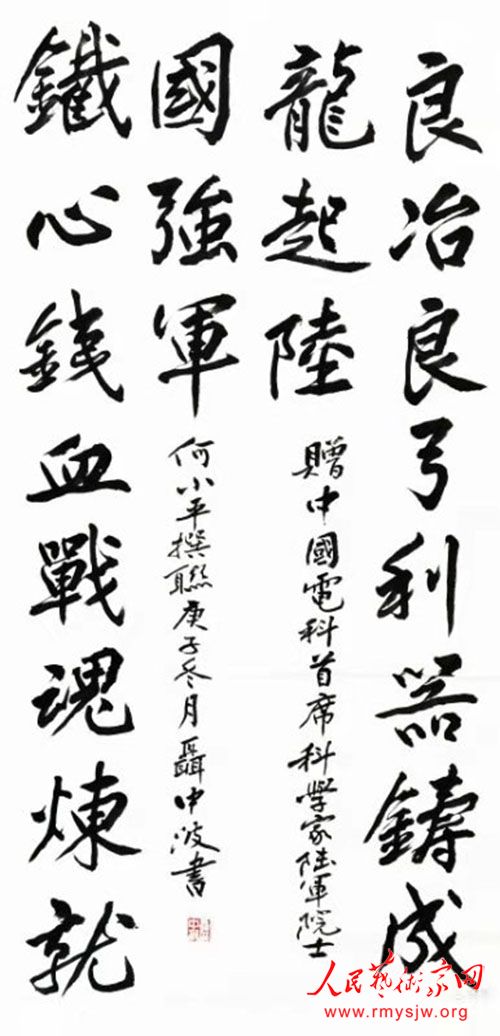 良冶良弓利器鑄成
龍起陸
贈中國電科首席科學家陸軍院士
鐵心銕血戰魂煉就
國強軍
何小平撰聯庚子冬月聶中波書
人民藝術家网
www.rmysjw.org